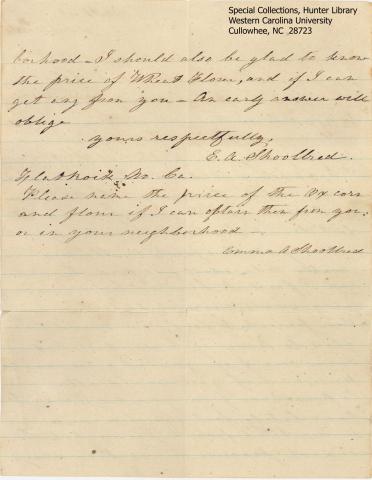 Special Collections, Hunter Library
Western Carolina University
Cullowhee, NC 28723
borhood – I should also be glad to know
the price of Wheat Flour, and if I can
get any from you – An early answer will
oblige
yours respectfully,
E. A. Shoolbred.
Flat Rock No. Ca.
Please name the price of the Ox corn
and flour if I can obtain them from you,
or in your neighborhood
Emma A Shoolbred